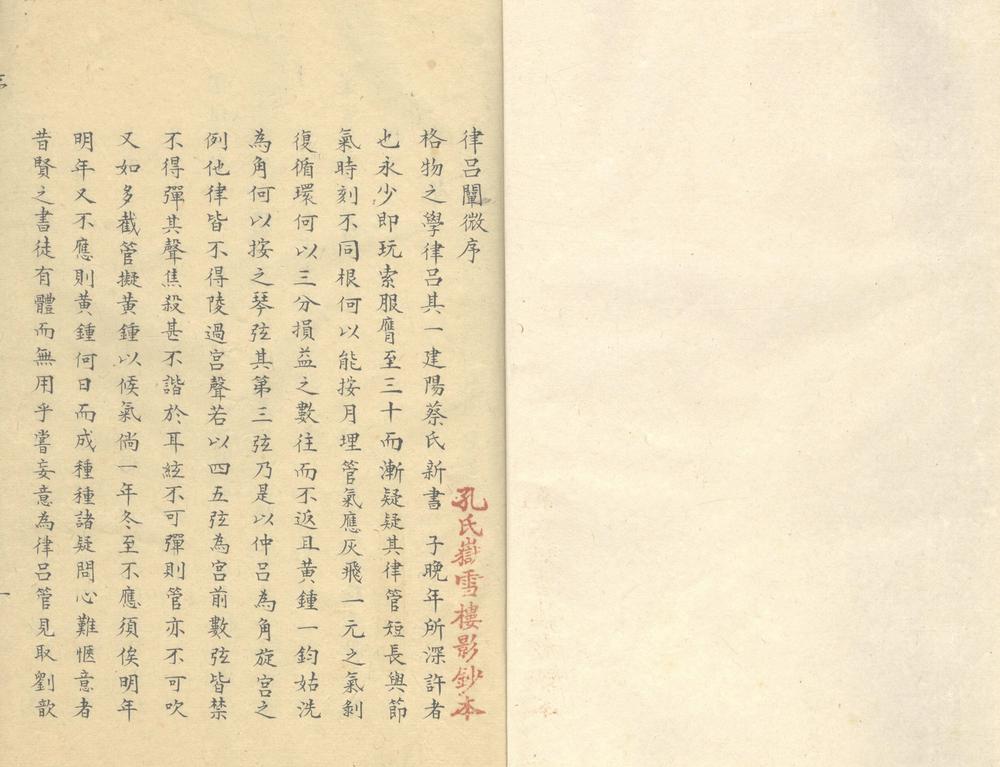 律呂闡微序
孔氏嶽雪樓影鈔本
格物之學律呂其一建陽蔡氏新書　子晚年所深許者
也永少即玩索服膺至三十而漸疑疑其律管短長與節
氣時刻不同根何以能按月埋管氣應灰飛一元之氣剝
復循環何以三分損益之數往而不返且黃鍾一鈞姑洗
為角何以按之琴弦其第三弦乃是以仲呂為角旋宮之
例他律皆不得陵過宮聲若以四五弦為宮前數弦皆禁
不得彈其聲焦殺甚不諧於耳絃不可彈則管亦不可吹
又如多截管擬黃鍾以候氣倘一年冬至不應須俟明年
明年又不應則黃鍾何日而成種種諸疑問心難愜意者
昔賢之書徒有體而無用乎嘗妄意為律呂管見取劉歆
一